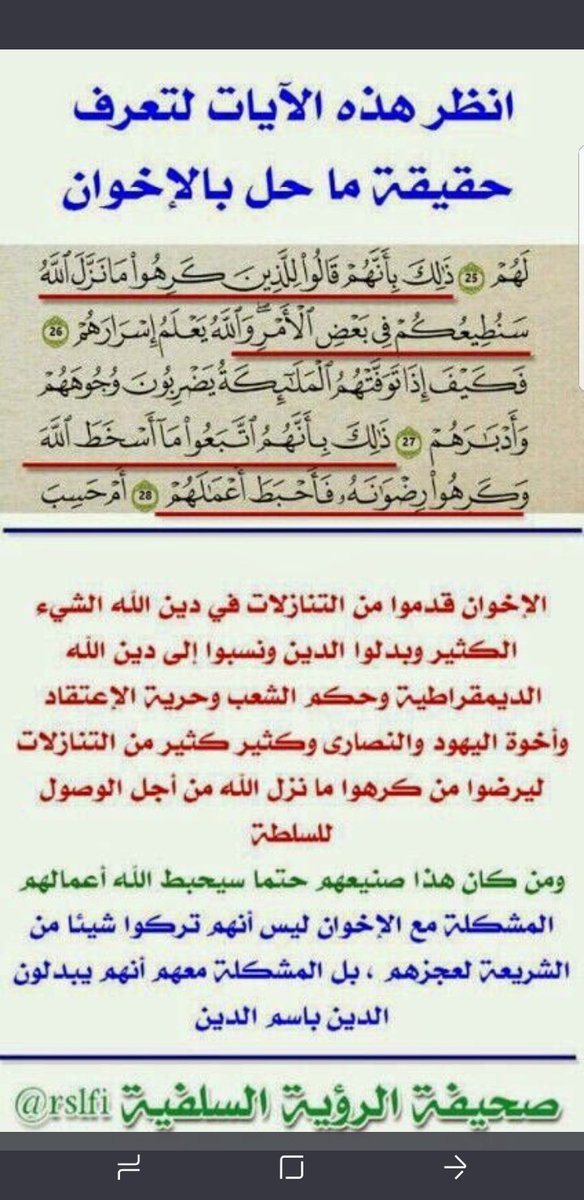 انظر هذه الآيات لتعرف
حقيقة ما حل بالإخوان
لَهُمْ 25 ذَٰلِكَ بِأَنَّهُمْ قَالُوا۟ لِلَّذِينَ كَرِهُوا۟ مَا نَزَّلَ ٱللَّهُ
سَنُطِيعُكُمْ فِى بَعْضِ ٱلْأَمْرِ ۖ وَٱللَّهُ يَعْلَمُ إِسْرَارَهُمْ 26
فَكَيْفَ إِذَا تَوَفَّتْهُمُ ٱلْمَلَٰٓئِكَةُ يَضْرِبُونَ وُجُوهَهُمْ
وَأَدْبَٰرَهُمْ 27 ذَٰلِكَ بِأَنَّهُمُ ٱتَّبَعُوا۟ مَآ أَسْخَطَ ٱللَّهَ
وَكَرِهُوا۟ رِضْوَٰنَهُۥ فَأَحْبَطَ أَعْمَٰلَهُمْ 28 أَمْ حَسِبَ
الإخوان قدموا من التنازلات في دين الله الشيء
الكثير وبدلوا الدين ونسبوا إلى دين الله
الديمقراطية وحكم الشعب وحرية الإعتقاد
وأخوة اليهود والنصارى وكثير كثير من التنازلات
ليرضوا من كرهوا ما نزل الله من أجل الوصول
للسلطة
ومن كان هذا صنيعهم حتما سيحبط الله أعمالهم
المشكلة مع الإخوان ليس أنهم تركوا شيئا من
الشريعة لعجزهم ، بل المشكلة معهم أنهم يبدلون
الدين باسم الدين
صحيفة الرؤية السلفية @rslfi